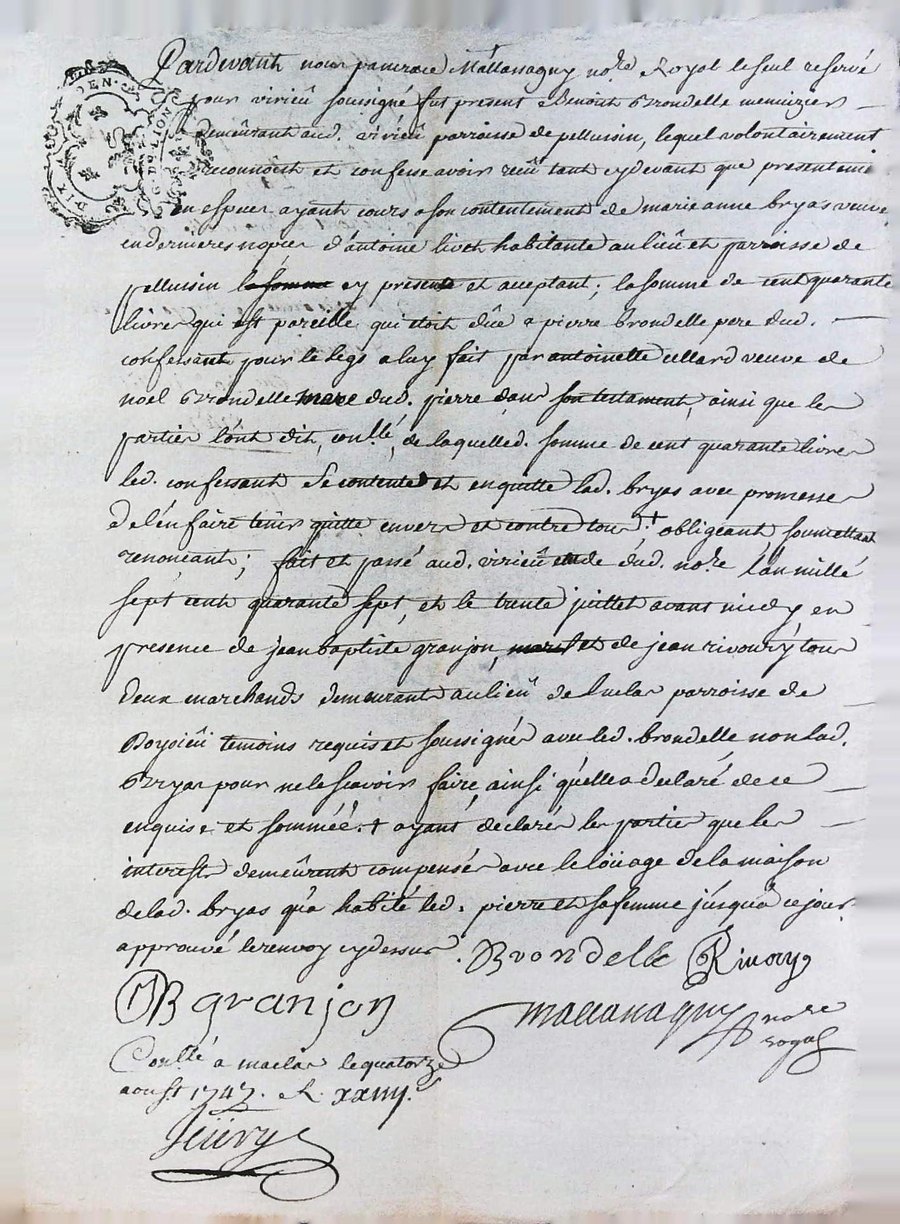 DIX DEN.
Pardevant nous pancrace Mallassagny no.re Royal le seul reservé
pour virieû soussigné fut present Benoit Brondelle menuizier
demeûrant aud. virieû parroisse de pellussin, lequel volontairement
reconnoist et confesse avoir reçû tant cydevant que presentement
en especes ayant cours a son contentement de marie anne bryas veuve
en dernieres nopces d'antoine liveh habitante au lieû et parroisse de
pellussin la somme cy presente et aceptant; la somme de cent quarante
livres qui est pareille qui étoit dûe a pierre brondelle pere dud.
confessant pour le legs a luy fait par antoinette ullard veuve de
noel Brondelle mere dud. pierre dans son testament, ainsi que les
parties l'ont dit, con.llé, de laquelled. somme de cent quarante livres
led. confessant se contente et en quitte lad. bryas avec promesses
de l'en faire tenir quitte envers et contre tous † obligeant, soumettant
renonceant; fait et passé aud. virieû etude dud. no.re l'an mille
sept cent quarante sept, et le trente juillet avant midy, en
presence de jean baptiste granjon, et de jean rivoury tous
deux marchands demeurant au lieû de luclas parroisse de
Boyoieû temoins requis et soussignés avec led. brondelle non lad.
Bryas pour ne le scavoir faire, ainsi qu'elle a declaré de ce
enquise et sommée. † ayant declarés les parties que les
interest demeûrent compensés avec le loüage de la maison
de lad. bryas qu'a habité led. pierre et sa femme jusqu'a ce jour
approuvé le renvoy cy dessus. Brondelle Rivory
JB granjon
Mallassagny no.re
royal
Con.llé a maclas le quatorze
aoust 1747. R. xxiiij s.